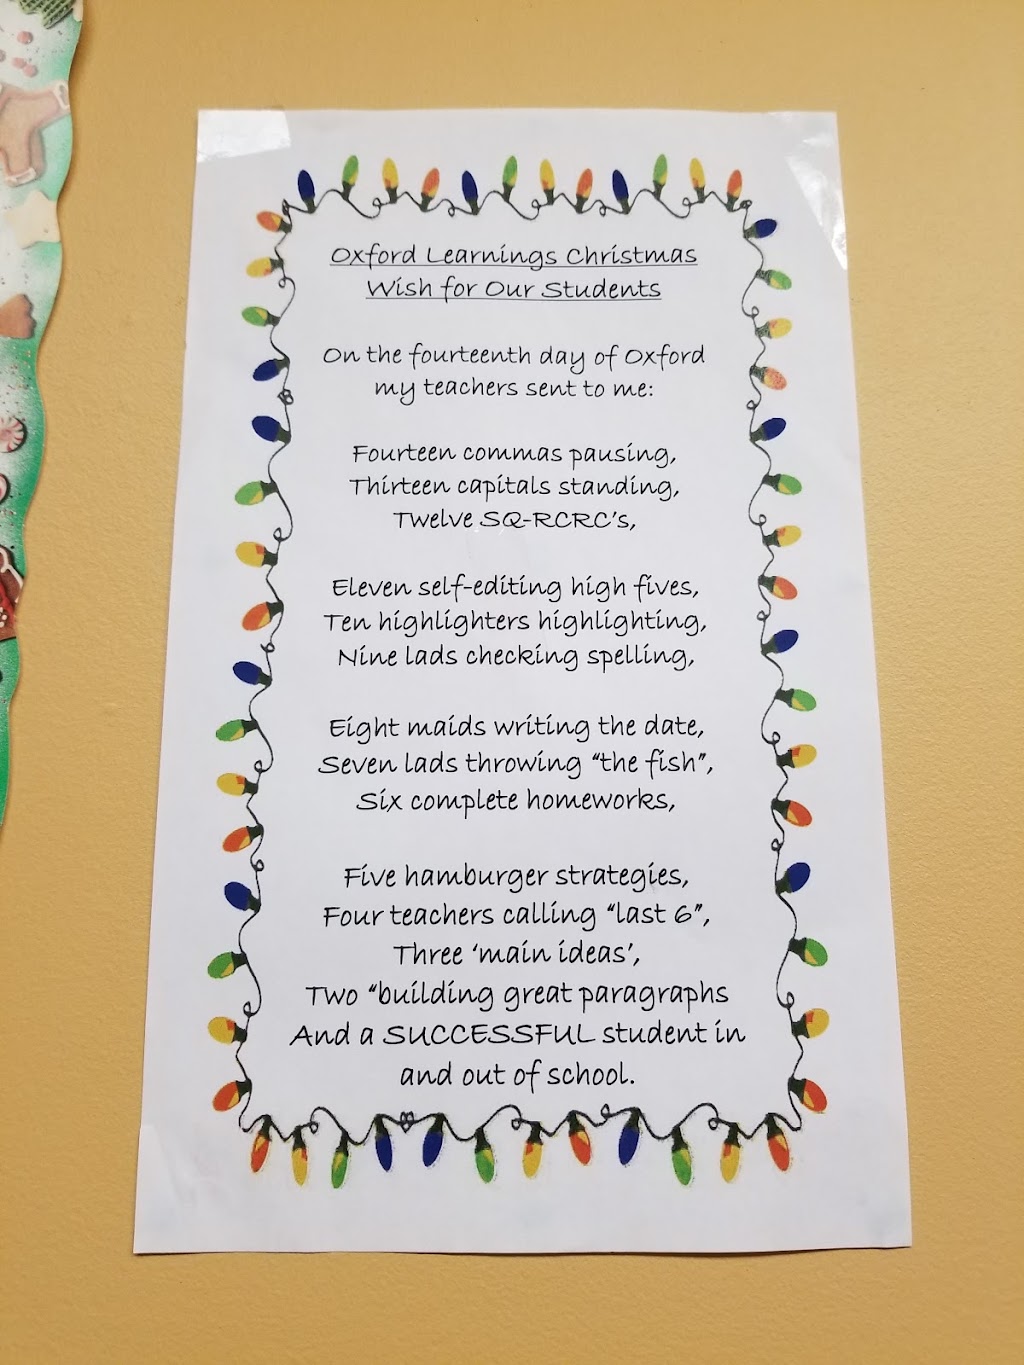 Oxford Learnings Christmas
Wish for Our Students
On the fourteenth day of Oxford
my teachers sent to me:
Fourteen commas pausing,
Thirteen capitals standing,
Twelve SQ-RCRC's,
Eleven self-editing high fives,
Ten highlighters highlighting,
Nine lads checking spelling,
Eight maids writing the date,
Seven lads throwing "the fish",
Six complete homeworks,
Five hamburger strategies,
Four teachers calling "last 6",
Three 'main ideas',
Two "building great paragraphs
And a SUCCESSFUL student in
and out of school.